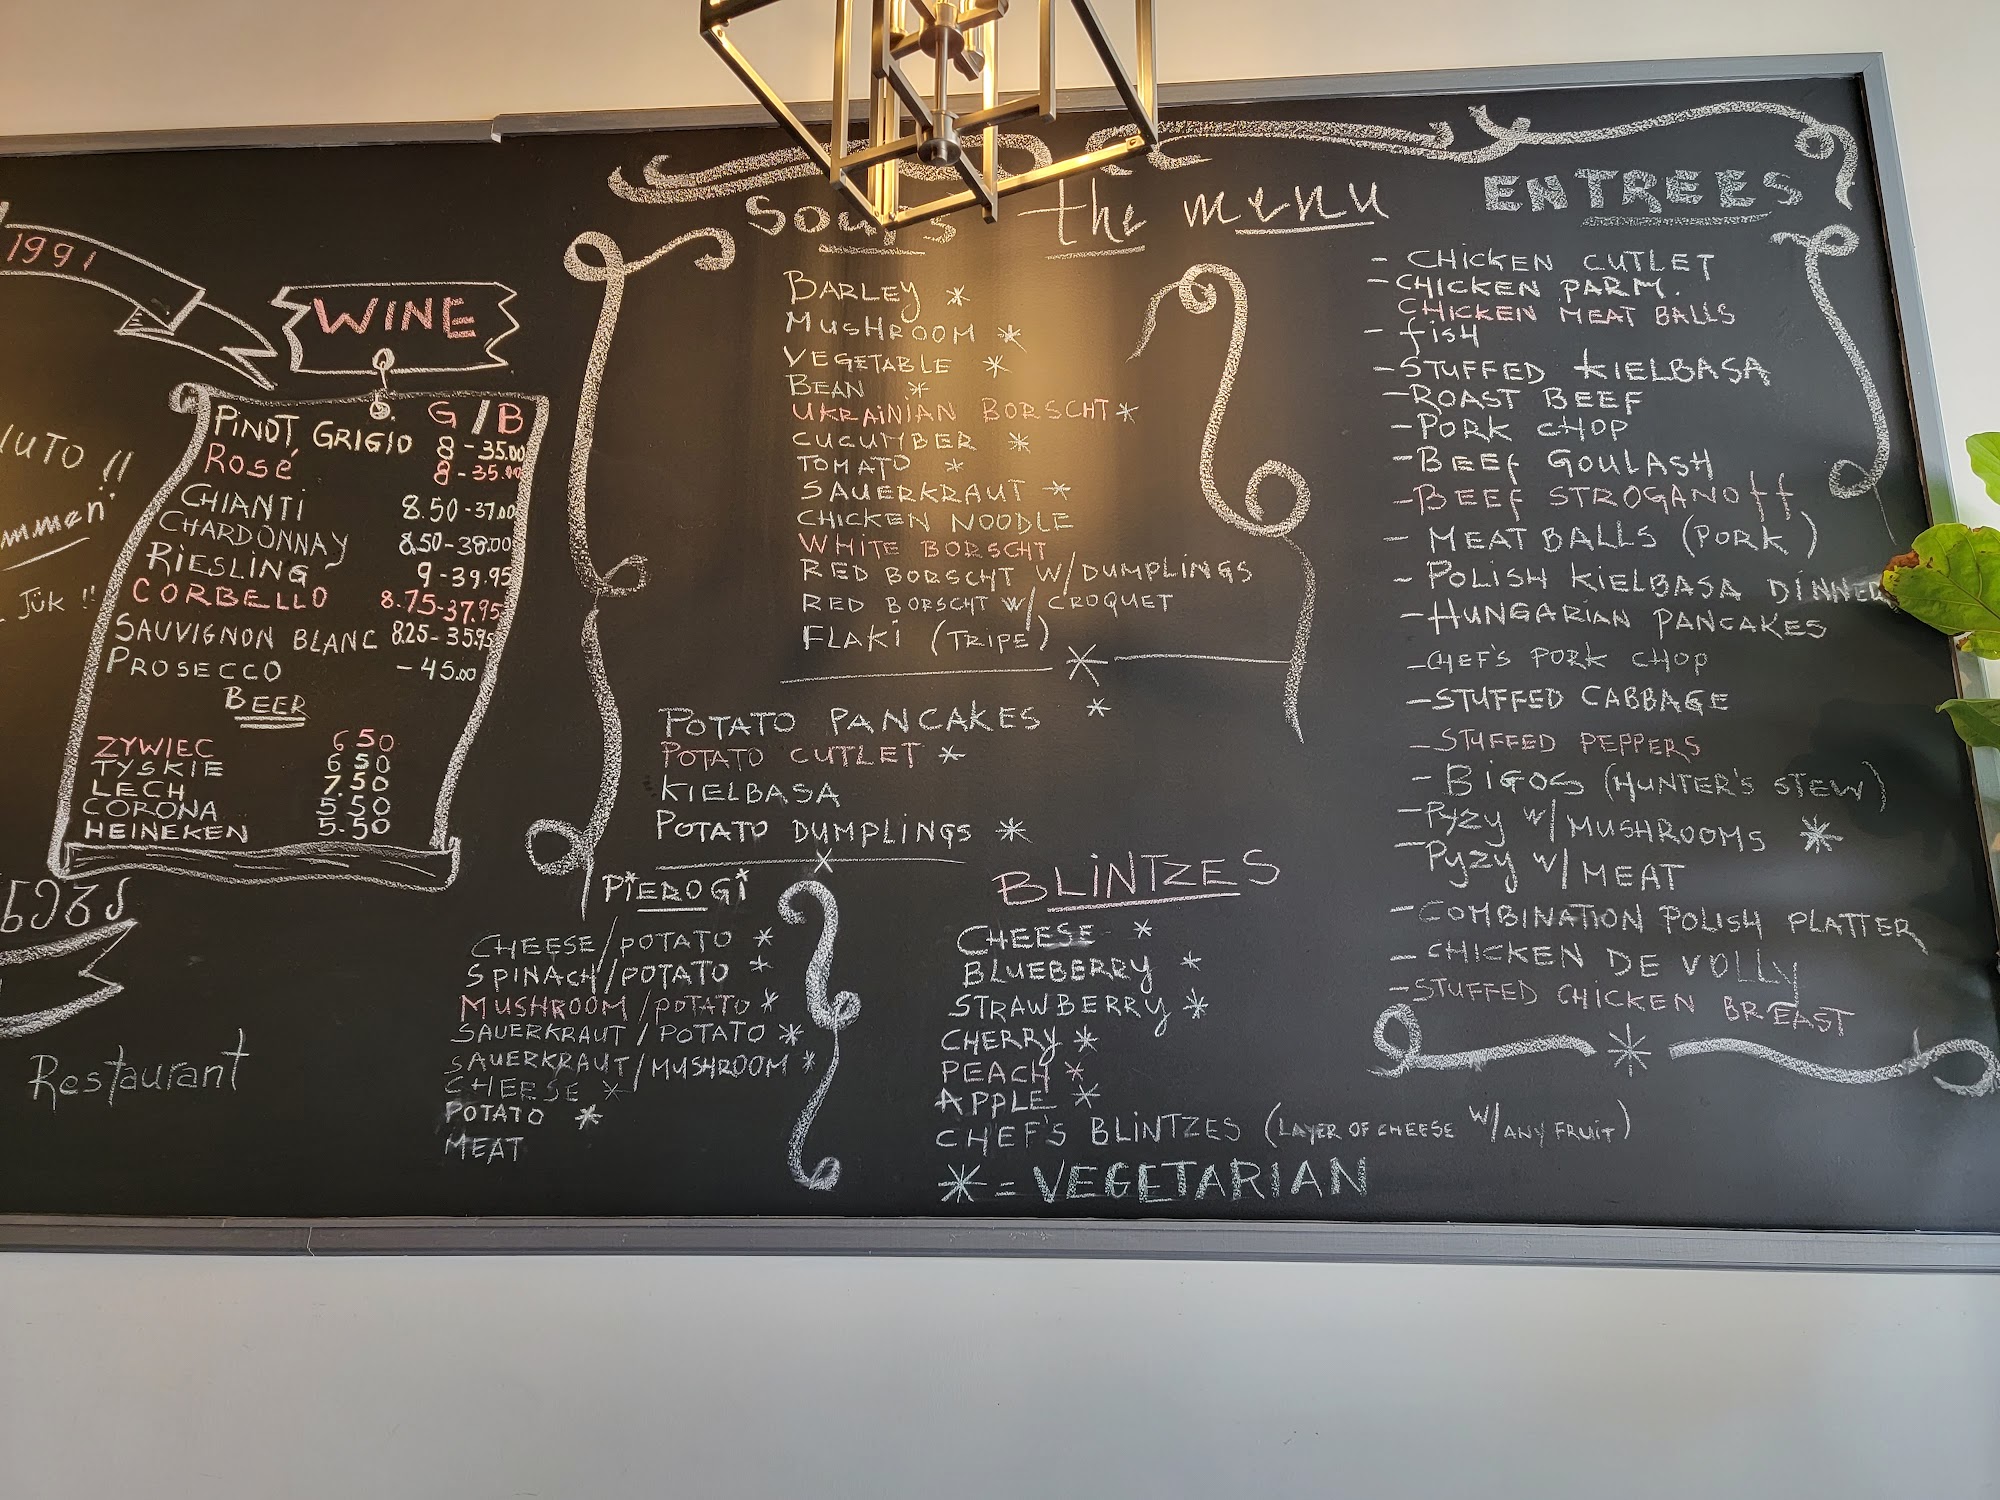 1991
UTO !!
mmen
Jük !!
Restaurant
WINE
G/B
PINOT GRIGIO 8-35.00
ROSÉ 8-35.00
CHIANTI 8.50-37.00
CHARDONNAY 8.50-38.00
RIESLING 9-39.95
CORBELLO 8.75-37.95
SAUVIGNON BLANC 8.25-35.95
PROSECCO -45.00
BEER
ZYWIEC 6 50
TYSKIE 6 50
LECH 7.50
CORONA 5.50
HEINEKEN 5.50
the menu
SOUPS
BARLEY *
MUSHROOM *
VEGETABLE *
BEAN *
UKRAINIAN BORSCHT *
CUCUMBER *
TOMATO *
SAUERKRAUT *
CHICKEN NOODLE
WHITE BORSCHT
RED BORSCHT W/DUMPLINGS
RED BORSCHT W/ CROQUET
FLAKI (TRIPE)
POTATO PANCAKES *
POTATO CUTLET *
KIELBASA
POTATO DUMPLINGS *
PIEROGI
CHEESE/POTATO *
SPINACH/POTATO *
MUSHROOM/POTATO *
SAUERKRAUT/POTATO *
SAUERKRAUT/MUSHROOM *
CHEESE *
POTATO *
MEAT
BLINTZES
CHEESE *
BLUEBERRY *
STRAWBERRY *
CHERRY *
PEACH *
APPLE *
CHEF'S BLINTZES (LAYER OF CHEESE W/ANY FRUIT)
* = VEGETARIAN
ENTREES
- CHICKEN CUTLET
- CHICKEN PARM.
CHICKEN MEAT BALLS
- fish
- STUFFED KIELBASA
- ROAST BEEF
- PORK CHOP
- BEEf GOULASH
- BEEf STROGANOff
- MEAT BALLS (PORK)
- POLISH KIELBASA DINNER
- HUNGARIAN PANCAKES
- CHEF'S PORK CHOP
- STUFFED CABBAGE
- STUFFED PEPPERS
- BIGOS (HUNTER'S STEW)
- PYZY W/MUSHROOMS *
- PYZY W/MEAT
- COMBINATION POLISH PLATTER
- CHICKEN DE VOLLY
- STUFFED CHICKEN BREAST